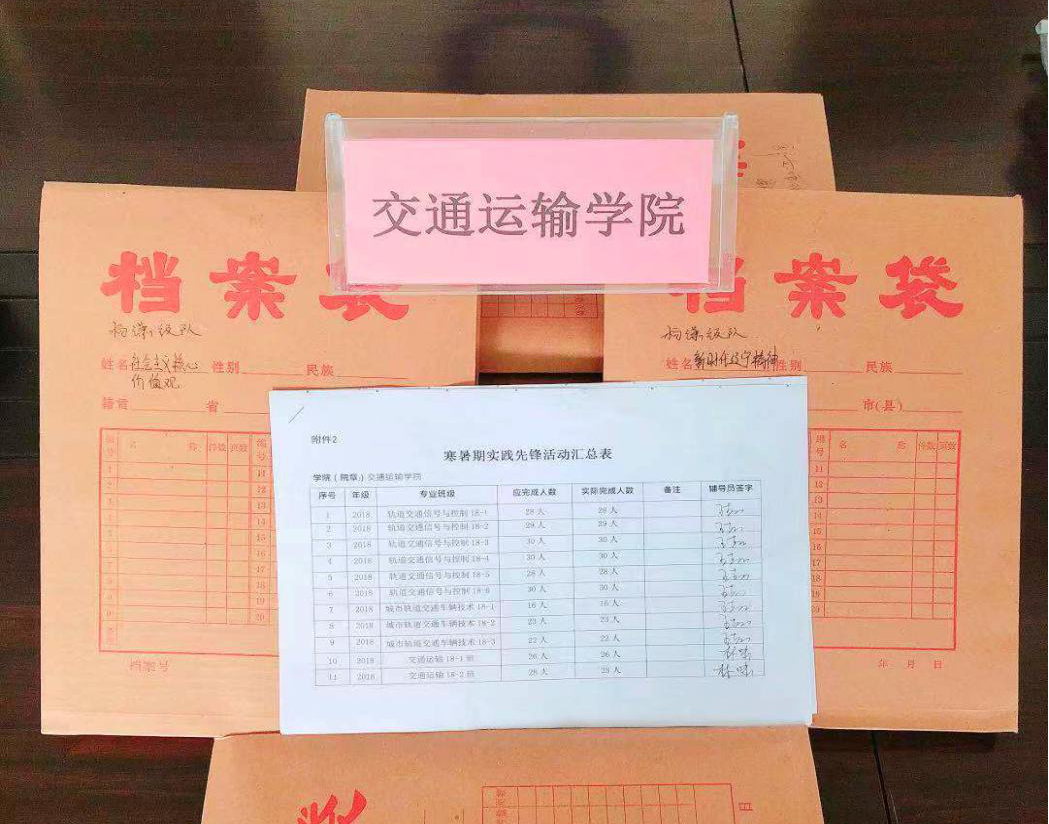 交通运输学院
档案袋
姓名 社会主义核心 性别 民族
价值观
籍贯 省
档案号
档案袋
姓名 新时代辽宁精神 性别 民族
市(县)
名 称 件数 页数
年 月 日
附件2
寒暑期实践先锋活动汇总表
学院（院章）交通运输学院
序号 年级 专业班级 应完成人数 实际完成人数 备注 辅导员签字
1 2018 轨道交通信号与控制 18-1 28 人 28 人
2 2018 轨道交通信号与控制 18-2 29 人 29 人
3 2018 轨道交通信号与控制 18-3 30 人 30 人
4 2018 轨道交通信号与控制 18-4 30 人 30 人
5 2018 轨道交通信号与控制 18-5 28 人 28 人
6 2018 轨道交通信号与控制 18-6 30 人 30 人
7 2018 城市轨道交通车辆技术 18-1 16 人 16 人
8 2018 城市轨道交通车辆技术 18-2 23 人 23 人
9 2018 城市轨道交通车辆技术 18-3 22 人 22 人
10 2018 交通运输 18-1 班 26 人 26 人
11 2018 交通运输 18-2 班